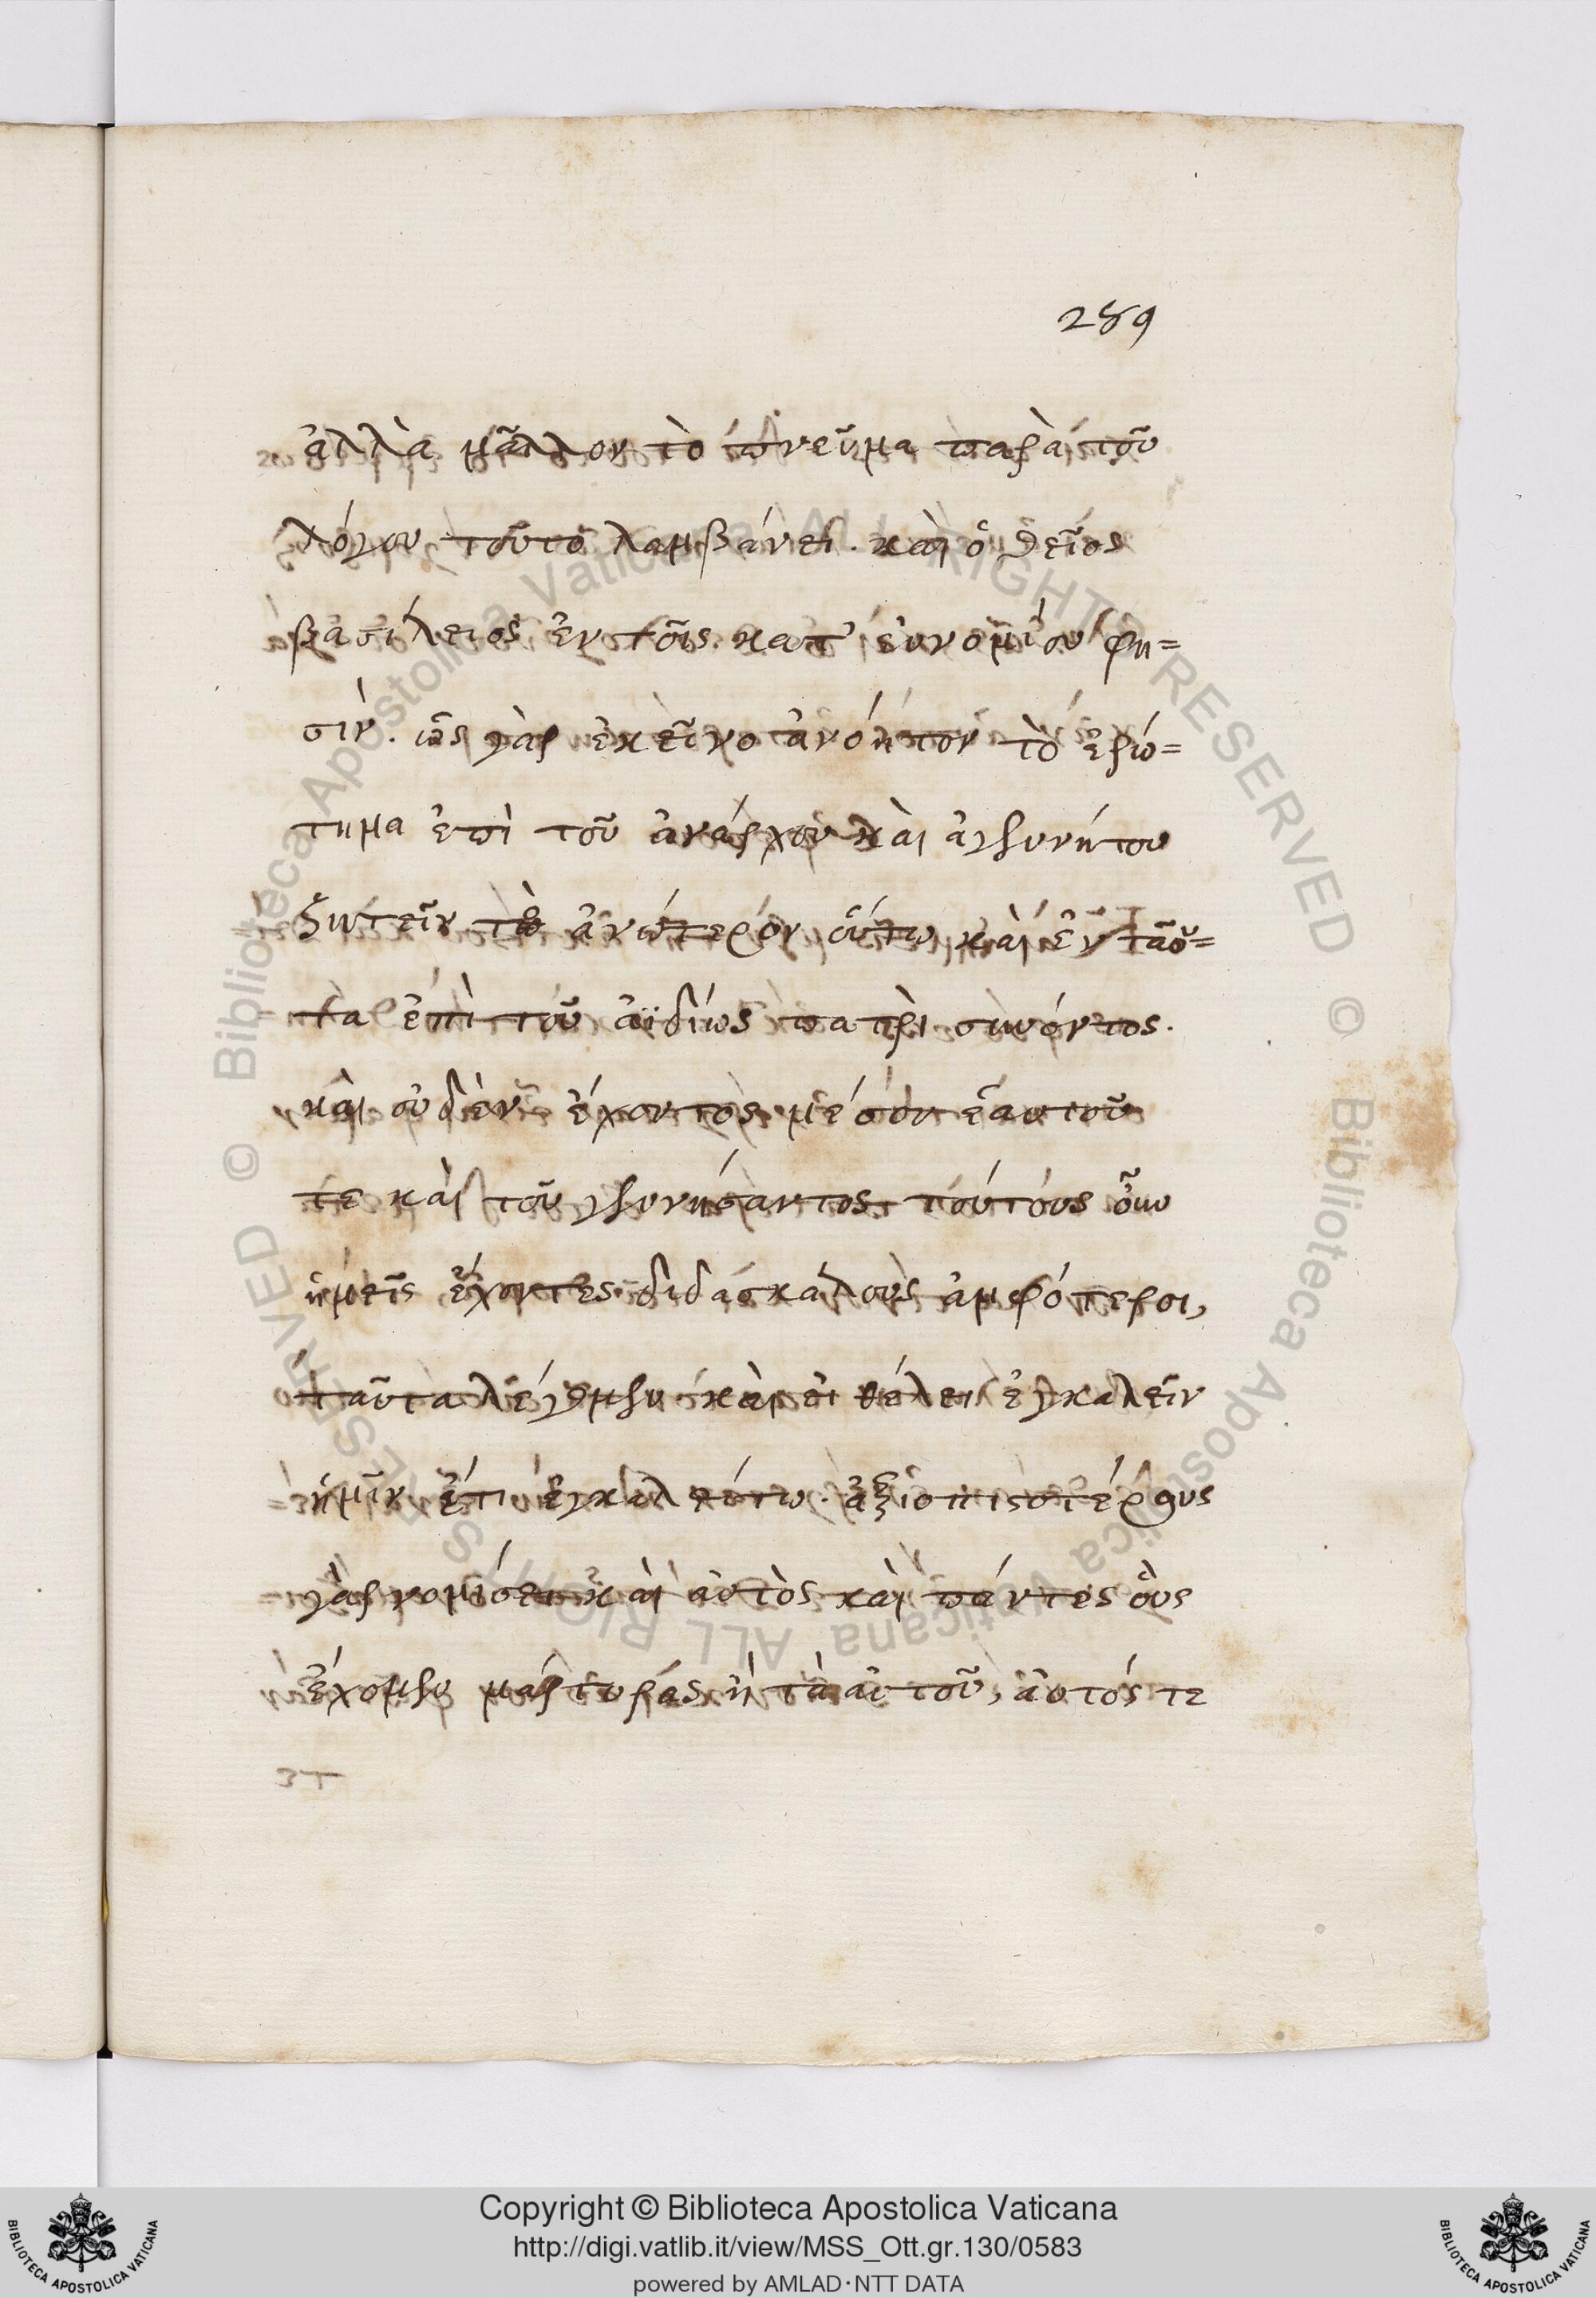 289
ἀλλὰ μᾶλλον τὸ πνεῦμα παρὰ τοῦ
λόγου τοῦτο λαμβάνει. καὶ ὁ θεῖος
βασίλειος ἐν τοῖς κατ' εὐνομίου φη=
σιν. ὡς γὰρ ἐκεῖνο ἀνόητον τὸ ἐρώ=
τημα ἐπὶ τοῦ ἀνάρχου καὶ ἀγεννήτου
ζητεῖν τὸ ἀνώτερον οὕτω καὶ ἐνταῦ=
τα ἐπὶ τοῦ ἀϊδίως πατρὶ συνόντος.
καὶ οὐδὲν ἔχοντος μέσον ἑαυτοῦ
τε καὶ τοῦ γεννήσαντος τούτους οὖν
ἡμεῖς ἔχοντες διδασκάλους ἀμφότεροι,
ταῦτα λέγομεν καὶ εἰ θέλει ἐγκαλεῖν
ἡμῖν ἔτι ἐγκαλείτω. ἀξιοπιστοτέρους
γὰρ νομίσει καὶ αὐτὸς καὶ πάντες οὓς
ἔχομεν μάρτυρας ἢ τὰ αὐτοῦ, αὐτός τε
Copyright © Biblioteca Apostolica Vaticana
http://digi.vatlib.it/view/MSS_Ott.gr.130/0583
powered by AMLAD·NTT DATA
BIBLIOTECA APOSTOLICA VATICANA
BIBLIOTECA APOSTOLICA VATICANA
© Biblioteca Apostolica Vaticana ALL RIGHTS RESERVED
© Biblioteca Apostolica Vaticana ALL RIGHTS RESERVED